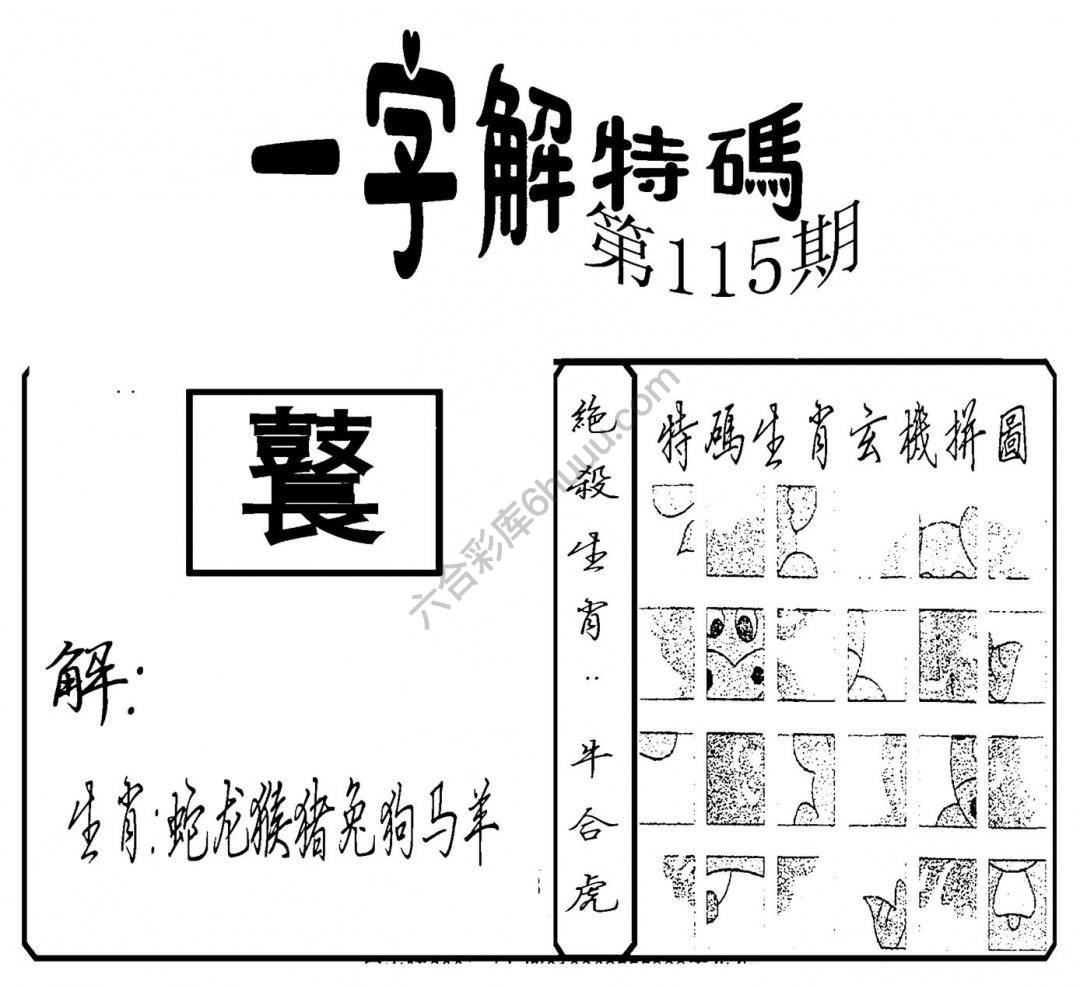 一字解特碼
第115期
鼚
解:
生肖:蛇龙猴猪兔狗马羊
絕殺生肖:牛合虎
特碼生肖玄機拼圖
六合彩库6huuu.com